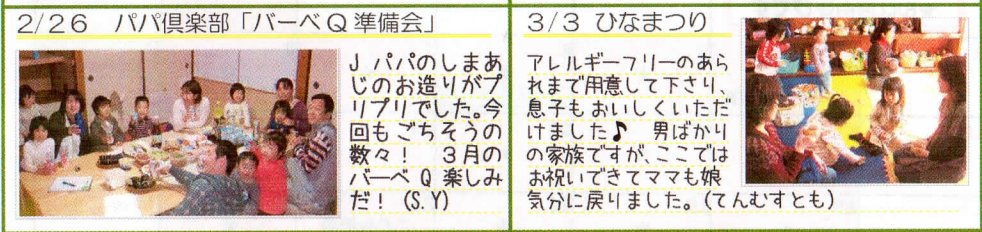 2/26 パパ倶楽部「バーベQ準備会」
J パパのしまあ
じのお造りがプ
リプリでした。今
回もごちそうの
数々! 3月の
バーベQ楽しみ
だ!(S.Y)
3/3 ひなまつり
アレルギーフリーのあら
れまで用意して下さり、
息子もおいしくいただ
けました♪ 男ばかり
の家族ですが、ここでは
お祝いできてママも娘
気分に戻りました。(てんむすとも)